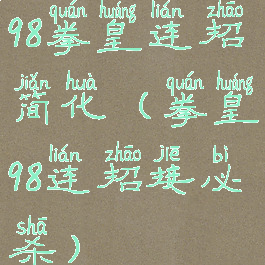 quán huáng lián zhāo
98拳皇连招
jiǎn huà quán huáng
简化(拳皇
lián zhāo jiē bì
98连招接必
shā
杀)